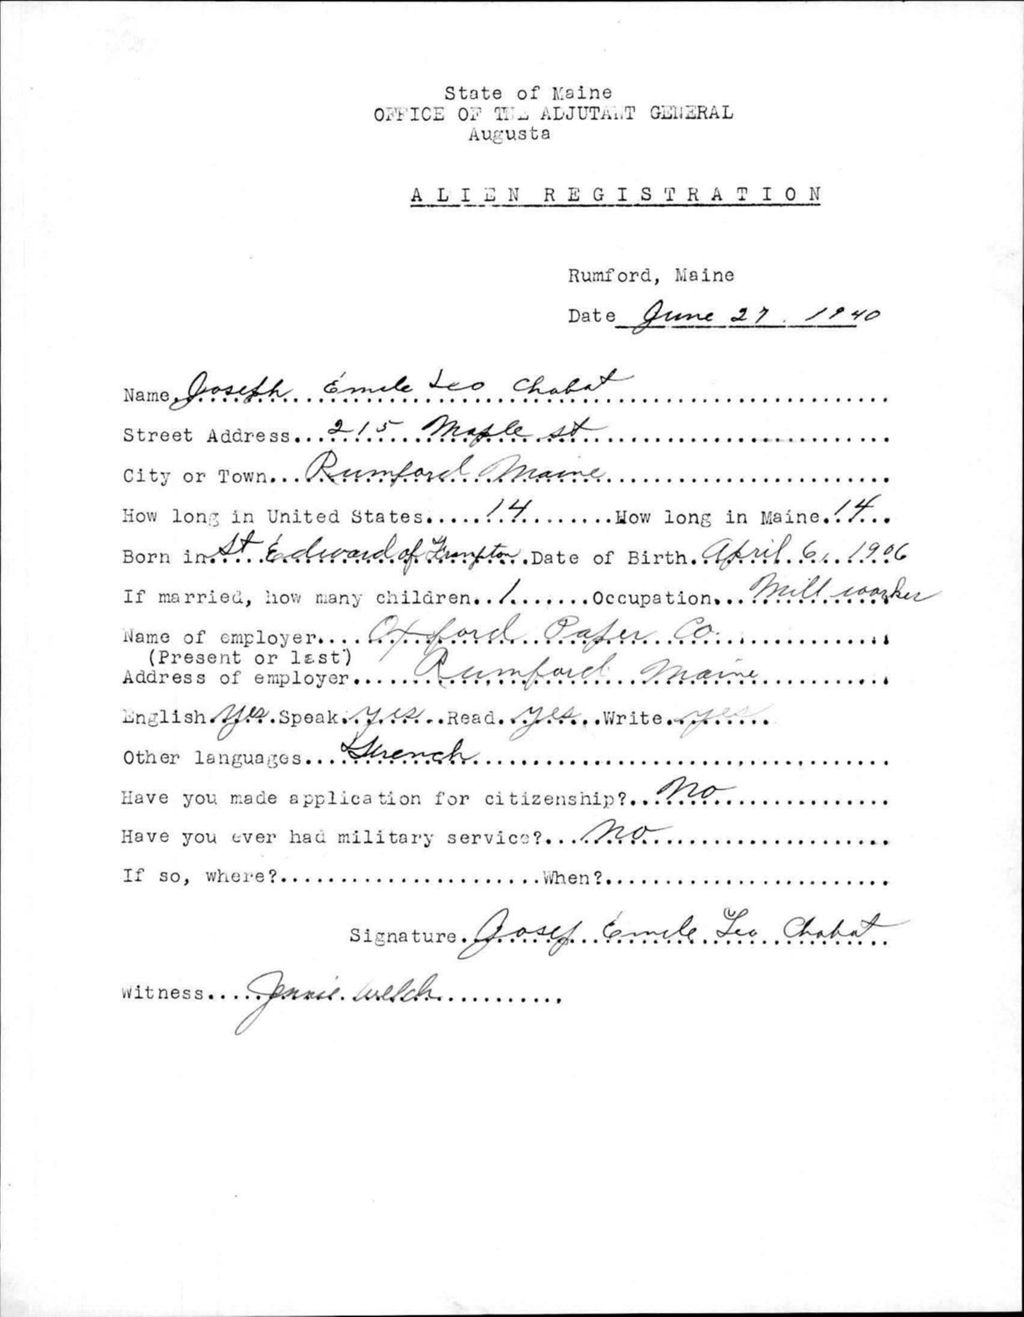 State of Maine
OFFICE OF THE ADJUTANT GENERAL
Augusta
ALIEN REGISTRATION
Rumford, Maine
Date June 27, 1940
Name Joseph Emile Leo Chabat
Street Address 215 Maple st
City or Town Rumford Maine
How long in United States 14 How long in Maine 14
Born in St Edward of Frampton Date of Birth April 6, 1906
If married, how many children 1 Occupation Mill worker
Name of employer Oxford Paper Co.
(Present or last)
Address of employer Rumford Maine
English yes Speak yes Read yes Write yes
Other languages French
Have you made application for citizenship? No
Have you ever had military service? No
If so, where? When?
Signature Josef Emile Leo Chabat
Witness Jennie Welch